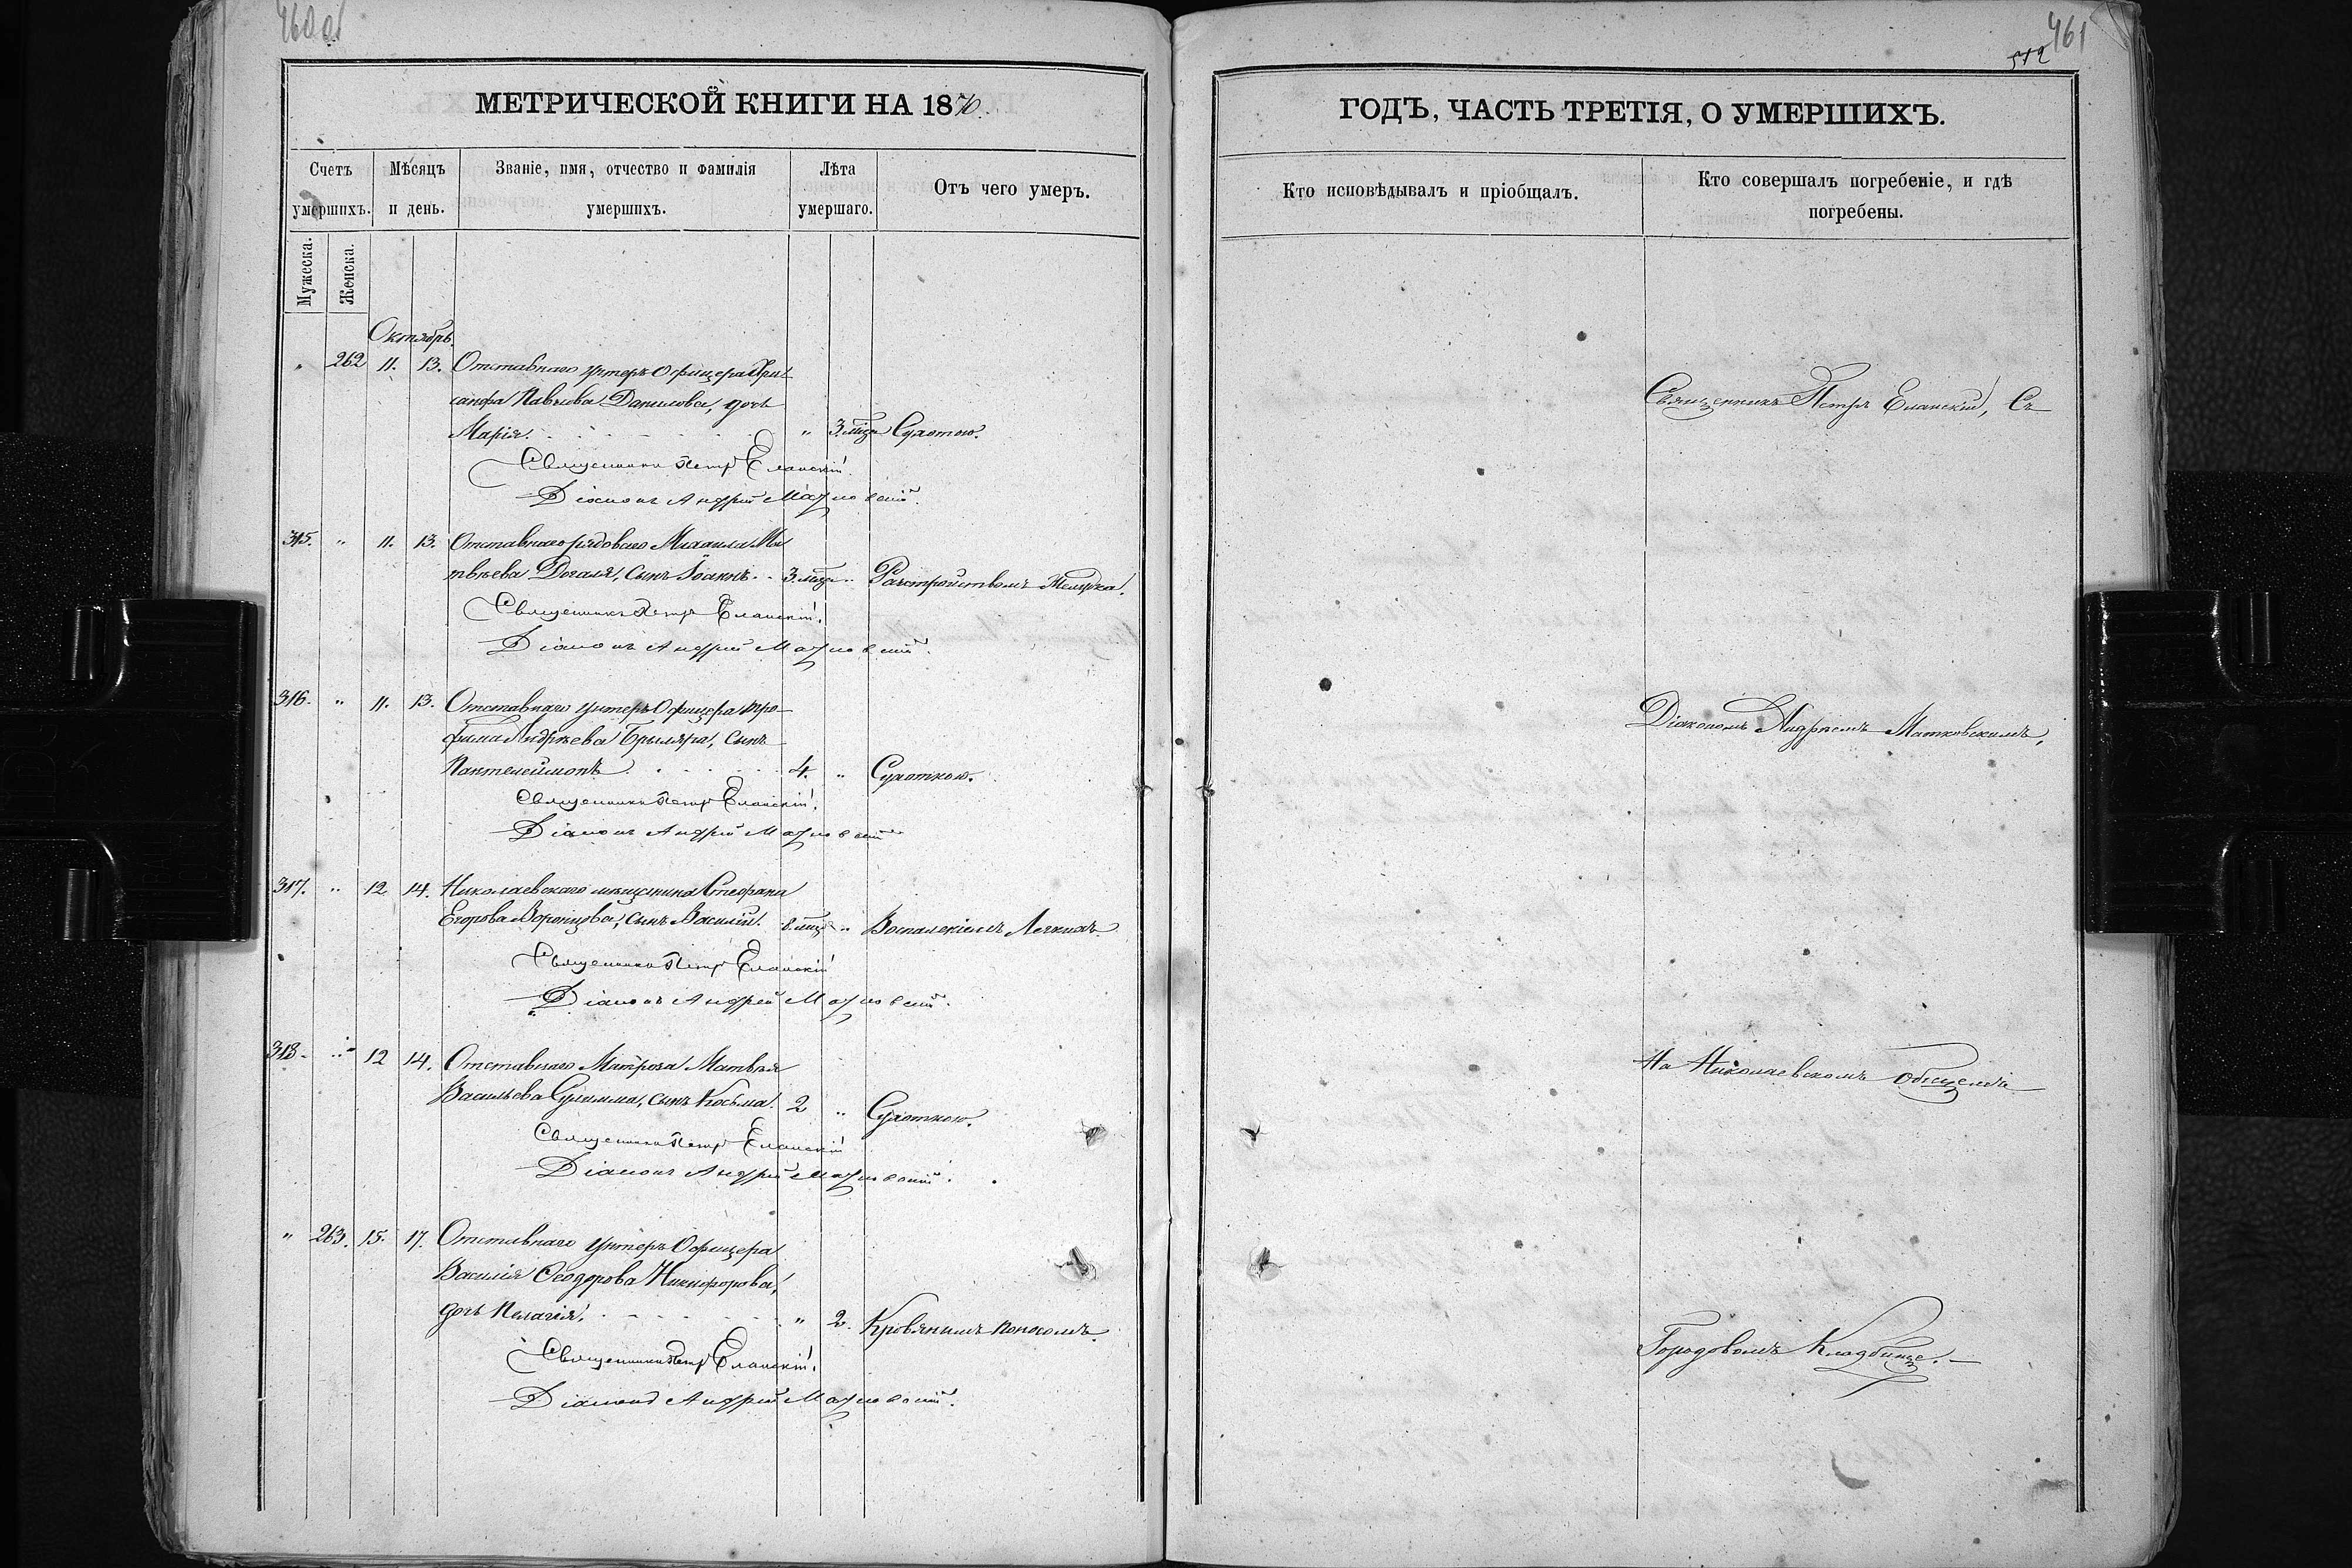 461
512
МЕТРИЧЕСКОЙ КНИГИ НА 1870
ГОДЪ, ЧАСТЬ ТРЕТІЯ, О УМЕРШИХЪ.
Счетъ умершихъ.
Мѣсяцъ и день.
Званіе, имя, отчество и фамилія умершихъ.
Лѣта умершаго.
Отъ чего умеръ.
Кто исповѣдывалъ и пріобщалъ.
Кто совершалъ погребеніе, и гдѣ погребены.
Мужеска.
Женска.
Октябрь.
" 262 11. 13. Отставнаго унтеръ Офицера Хри
санфа Павлова Данилова, дочь
Марія. " 3 мѣся Сухотою.
Священникъ Петръ Еланскій
Діаконъ Андрей Матковскій.
315. " 11. 13. Отставнаго рядоваго Михаила Ма
твѣева Догаля, сынъ Іоаннъ. 3 мѣся " Разстройствомъ Желудка.
Священникъ Петръ Еланскій
Діаконъ Андрей Матковскій.
316. " 11. 13. Отставнаго унтеръ Офицера Тро-
фима Андреева Брыляра, сынъ
Пантелеймонъ. 4. " Сухоткою.
Священникъ Петръ Еланскій
Діаконъ Андрей Матковскій
317. " 12 14. Николаевскаго мѣщанина Стефана
Егорова Воронцова, сынъ Василій. " Воспаленіемъ Легкихъ.
Священникъ Петръ Еланскій
Діаконъ Андрей Матковскій.
318. " 12 14. Отставнаго Матроза Матвѣя
Васильева Сулимма, сынъ Косьма. 2 " Сухоткою.
Священникъ Петръ Еланскій
Діаконъ Андрей Матковскій.
" 263. 15. 17. Отставнаго унтеръ Офицера
Василія Ѳеодорова Никифорова,
дочь Пелагія. " 2. Кровянымъ поносомъ.
Священникъ Петръ Еланскій
Діаконъ Андрей Матковскій.
Священникъ Петръ Еланскій, Съ
Діакономъ Андреемъ Матковскимъ,
На Николаевскомъ общемъ
Городовомъ Кладбище.